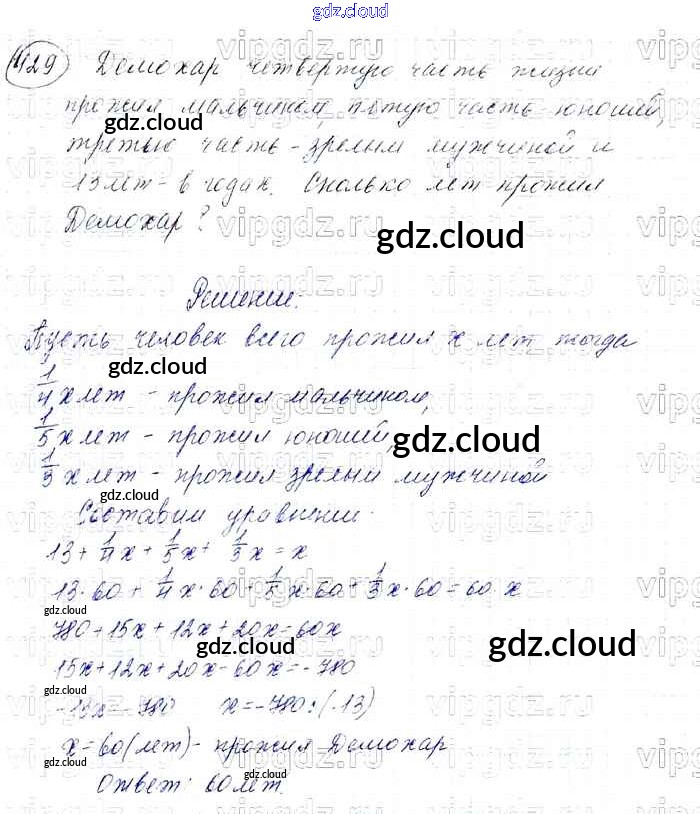 gdz.cloud
1129 Демохар четвертую часть жизни
прожил мальчиком, пятую часть юношей,
gdz.cloud
третью часть - зрелым мужчиной и
13 лет - в годах. Сколько лет прожил
Демохар?
gdz.cloud
Решение:
Пусть человек всего прожил x лет тогда
gdz.cloud
1/4 x лет - прожил мальчиком,
1/5 x лет - прожил юношей,
gdz.cloud
1/3 x лет - прожил зрелым мужчиной
gdz.cloud
Составим уравнение.
13 + 1/4 x + 1/5 x + 1/3 x = x
13·60 + 1/4 x·60 + 1/5 x·60 + 1/3 x·60 = 60·x
gdz.cloud
780 + 15x + 12x + 20x = 60x
gdz.cloud
15x + 12x + 20x - 60x = -780
gdz.cloud
-13x = -780 x = -780:(-13)
x = 60 (лет) - прожил Демохар
gdz.cloud
Ответ: 60 лет.
gdz.cloud